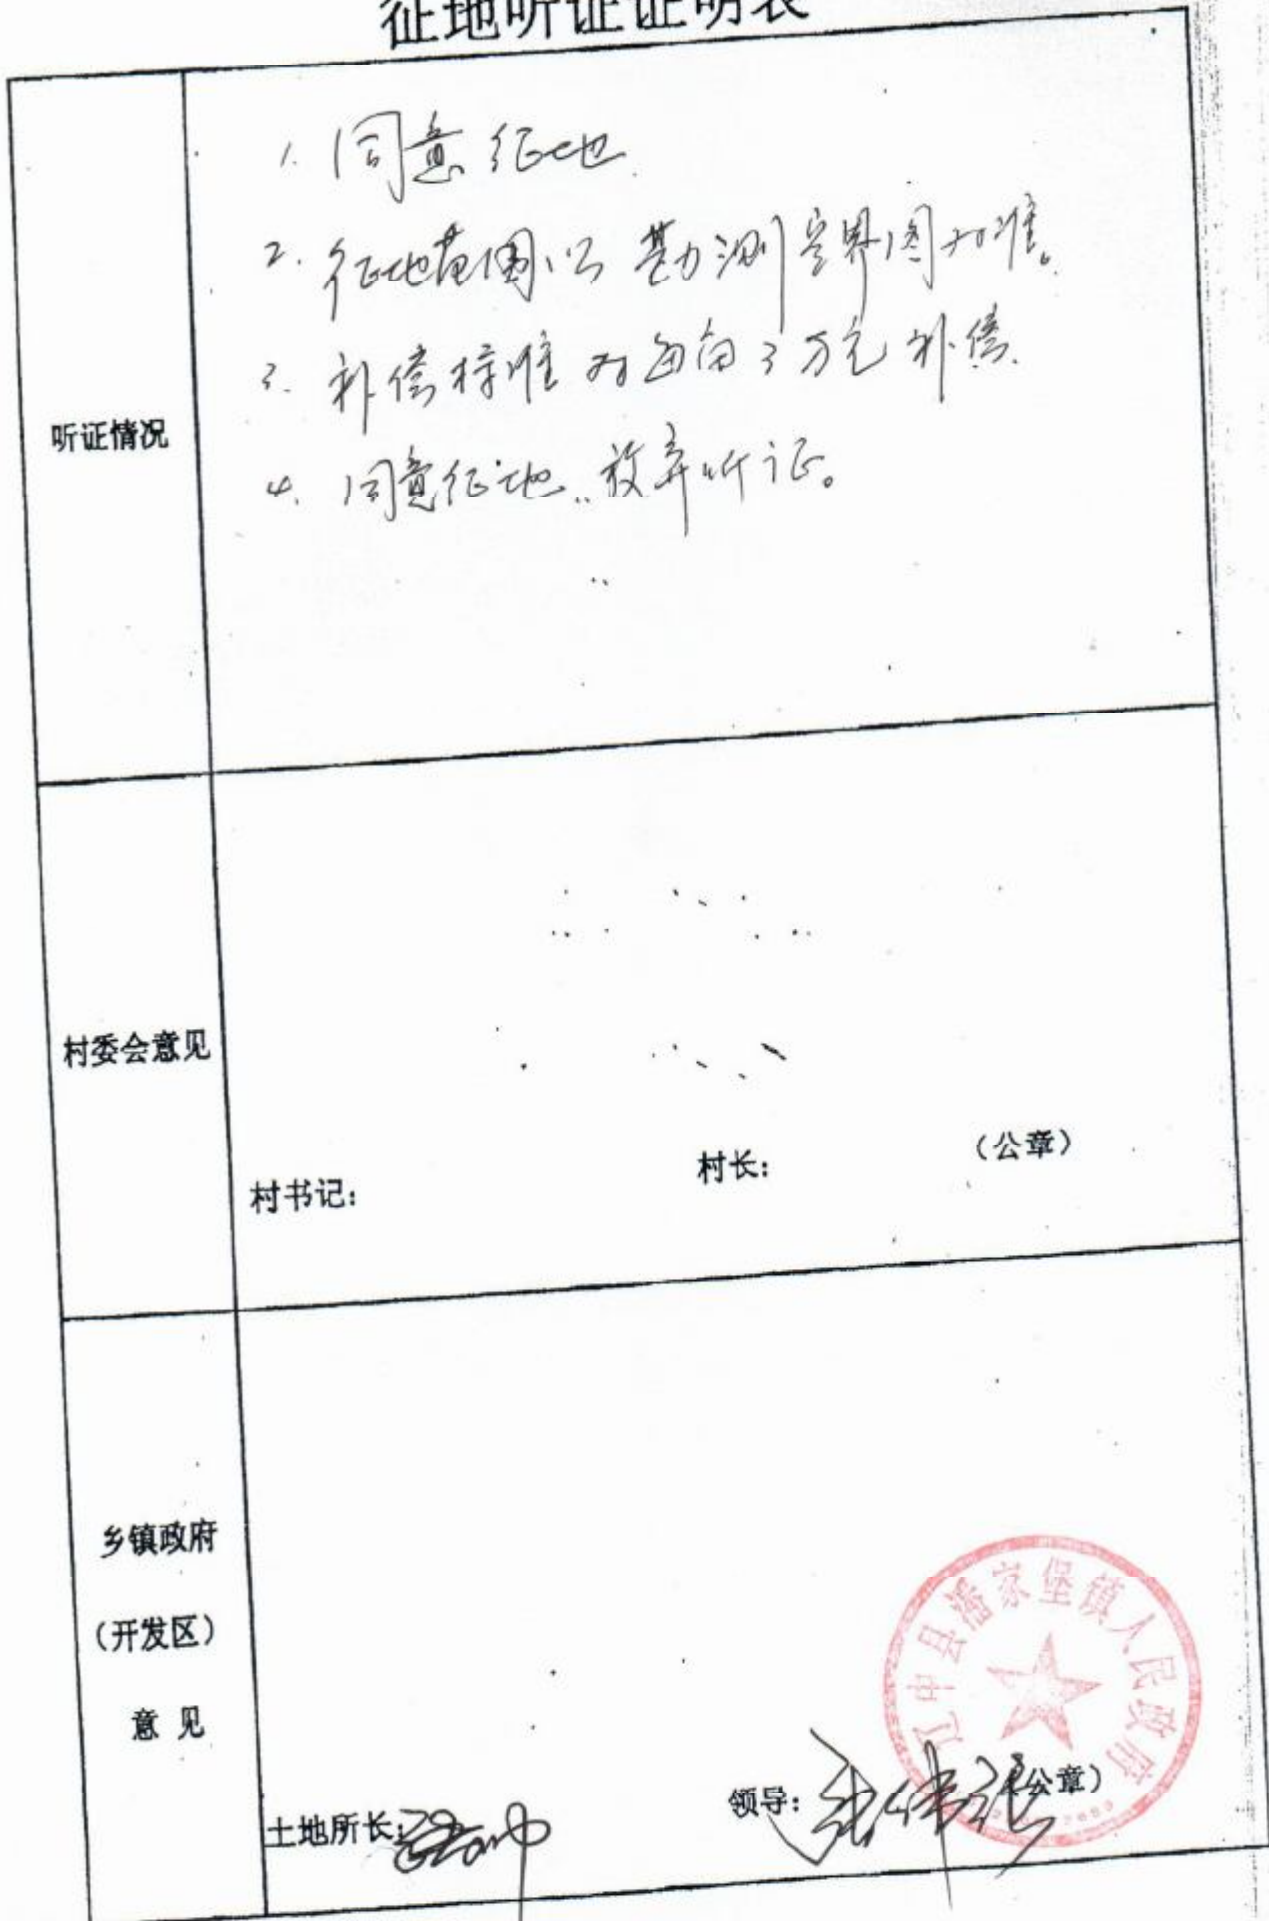 征地听证证明表
听证情况
1. 同意征地.
2. 征地范围以勘测定界图为准。
3. 补偿标准为每亩3万元补偿.
4. 同意征地..放弃听证。
村委会意见
村书记:
村长:
(公章)
乡镇政府
(开发区)
意 见
辽中县潘家堡镇人民政府
土地所长:
领导:
(公章)